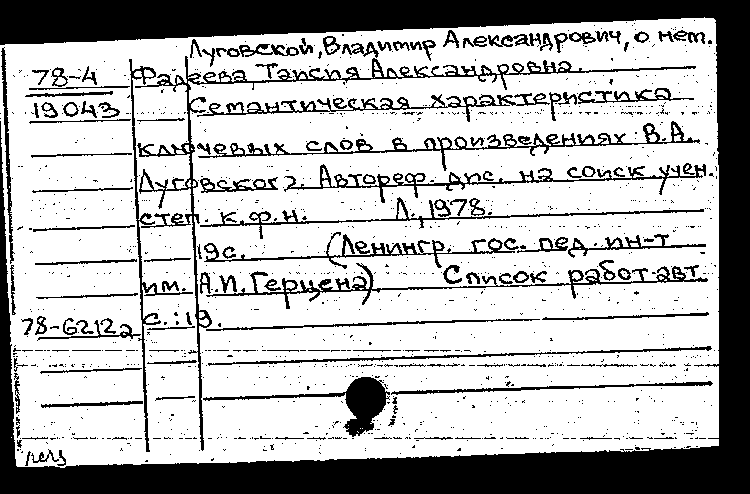 Луговской, Владимир Александрович, о нем.
78-4 Фадеева, Таисия Александровна.
19043 Семантическая характеристика
ключевых слов в произведениях В.А.
Луговского. Автореф. дис. на соиск учен.
степ. к.ф.н. Л., 1978.
19с. (Ленингр. гос. пед. ин-т
им. А.И. Герцена). Список работ авт.
78-6212а с.: 19.